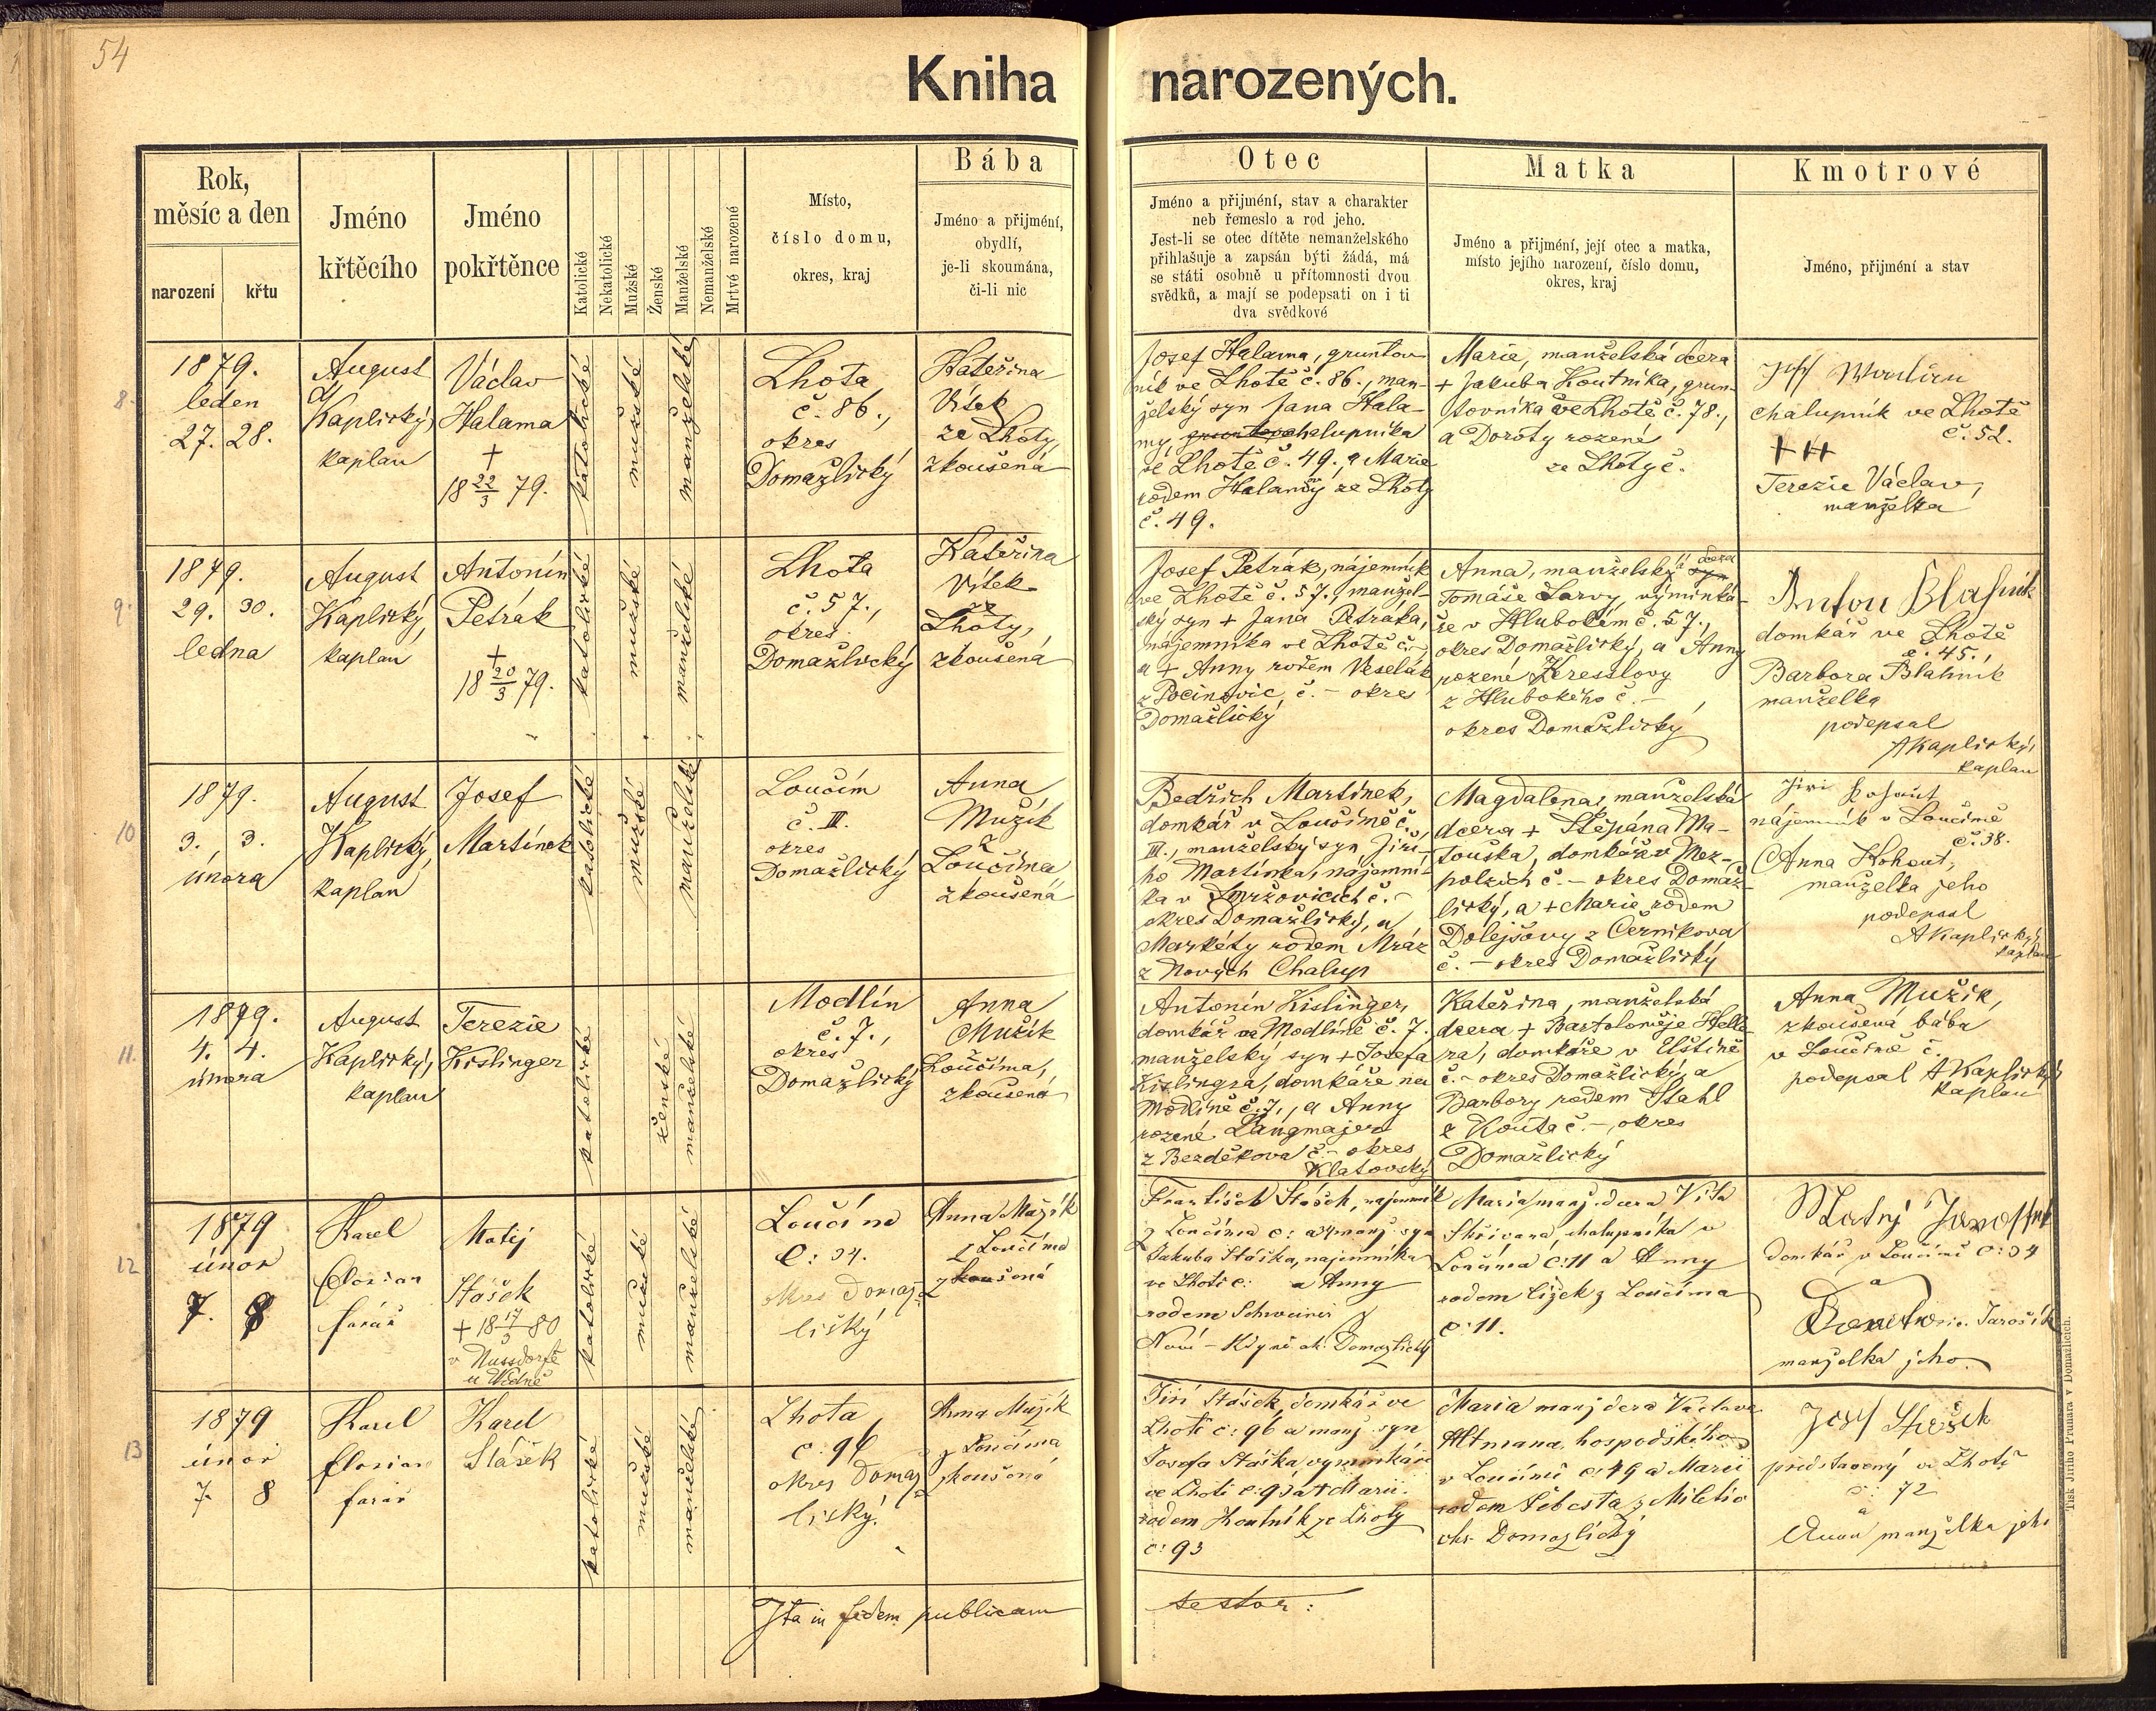 54
Kniha narozených.
Rok,
měsíc a den
narození
křtu
Jméno
křtěcího
Jméno
pokřtěnce
Katolické
Nekatolické
Mužské
Ženské
Manželské
Nemanželské
Mrtvé narozené
Místo,
číslo domu,
okres, kraj
Bába
Jméno a přijmení,
obydlí,
je-li skoumána,
či-li nic
Otec
Jméno a přijmení, stav a charakter
neb řemeslo a rod jeho.
Jest-li se otec dítěte nemanželského
přihlašuje a zapsán býti žádá, má
se státi osobně u přítomnosti dvou
svědků, a mají se podepsati on i ti
dva svědkové
Matka
Jméno a přijmení, její otec a matka,
místo jejího narození, číslo domu,
okres, kraj
Kmotrové
Jméno, přijmení a stav
8.
1879.
leden
27. 28.
August
Kaplický,
kaplan
Václav
Halama
+
18 22/3 79.
katolické
mužské
manželské
Lhota
č. 86.,
okres
Domažlický
Kateřina
Vítek
ze Lhoty,
zkoušená
Josef Halama, gruntov
ník ve Lhotě č. 86., man-
želský syn Jana Hala-
my, chalupníka
ve Lhotě č. 49., a Marie
rodem Halamy ze Lhoty
č. 49.
Marie, manželská dcera
+ Jakuba Koutníka, grun-
tovníka ve Lhotě č. 78.,
a Doroty rozené
ze Lhoty č.
chalupník ve Lhotě
č. 52.
+++
Terezie Václav,
manželka
9.
1879.
29. 30.
ledna
August
Kaplický,
kaplan
Antonín
Petrák
+
18 20/3 79.
katolické
mužské
manželské
Lhota
č. 57.,
okres
Domažlický
Kateřina
Vítek
ze
Lhoty,
zkoušená
Josef Petrák, nájemník
ve Lhotě č. 57., manžel-
ský syn + Jana Petráka,
nájemníka ve Lhotě č. –,
a + Anny rodem Veselák
z Pocinovic č. – okres
Domažlický
Anna, manželská dcera
Tomáše Larvy, výminká-
ře v Hlubokém č. 57.,
okres Domažlický, a Anny
rozené Kresslovy
z Hlubokého č. –,
okres Domažlický
Anton Blahnik
domkář ve Lhotě
č. 45.,
Barbora Blahník
manželka
podepsal
AKaplický,
kaplan
10
1879.
3. 3.
února
August
Kaplický,
kaplan
Josef
Martínek
katolické
mužské
manželské
Loučím
č. III.
okres
Domažlický
Anna
Mužík
z
Loučíma
zkoušená
Bedřich Martínek,
domkář v Loučímě č.
III., manželský syn Jiří-
ho Martínka, nájemní-
ka v Smržovicích č. –
okres Domažlický, a
Markéty rodem Mráz
z Nových Chalup
Magdalena, manželská
dcera + Štěpána Ma-
touška, domkáře v Mez-
polzích č. – okres Domaž-
lický, a + Marie rodem
Dolejšovy z Černíkova
č. – okres Domažlický
Jiri Kohout
nájemník v Loučímě
č. 38.
Anna Kohout,
manželka jeho
podepsal
AKaplický,
kaplan
11.
1879.
4. 4.
února
August
Kaplický,
kaplan
Terezie
Kislinger
katolické
ženské
manželské
Modlín
č. 7.,
okres
Domažlický
Anna
Mužík
z
Loučíma,
zkoušená
Antonín Kislinger,
domkář na Modlíně č. 7.
manželský syn + Josefa
Kislingra, domkáře na
Modlíně č. 7., a Anny
rozené Langmajer
z Bezděkova č. – okres
Klatovský
Kateřina, manželská
dcera + Bartoloměje Helle
ra, domkáře v Úlštíně
č. – okres Domažlický, a
Barbory rodem Stahl
z Kouta č. –, okres
Domažlický
Anna Mužík,
zkoušená bába
v Loučímě č.
podepsal AKaplický
kaplan
12
1879
únor
7. 8
Karel
Florian
farář
Matěj
Stášek
+ 18 17/3 80
v Nussdorfě
u Vídně
katolické
mužské
manželské
Loučíma
č: 34.
okres Domaž-
lický
Anna Mužík
z Loučíma
zkoušená
František Stášek, nájemník
z Loučíma č: 34 manž. syn
Jakuba Stáška, nájemníka
ve Lhotě č: a Anny
rodem
Nové-Kdyně ok. Domažlický
Maria manž. dcera Víta
chalupníka v
Loučímě č: 11 a Anny
rodem Čížek z Loučíma
č: 11.
domkář v Loučímě č: 34
a
Jarošík
manželka jeho.
13
1879
únor
7. 8
Karel
Florian
farář
Karel
Stášek
katolické
mužské
manželské
Lhota
č: 96
okres Domaž-
lický.
Anna Mužík
z Loučíma
zkoušená
Jiří Stášek, domkář ve
Lhotě č: 96 a manž. syn
Josefa Stáška, výminkáře
ve Lhotě č: 93 a + Marii
rodem Koutník ze Lhoty
č: 93
Maria manž dcera Václava
Altmana, hospodského
v Loučímě č: 49 a Marii
rodem Šebesta z Miletic
okr. Domažlický
Josef Stašek
představený ve Lhotě
č: 72
a
Anna manželka jeho
Ita in fidem publicam
testor:
Tisk Jiřího Prunara v Domažlicích.